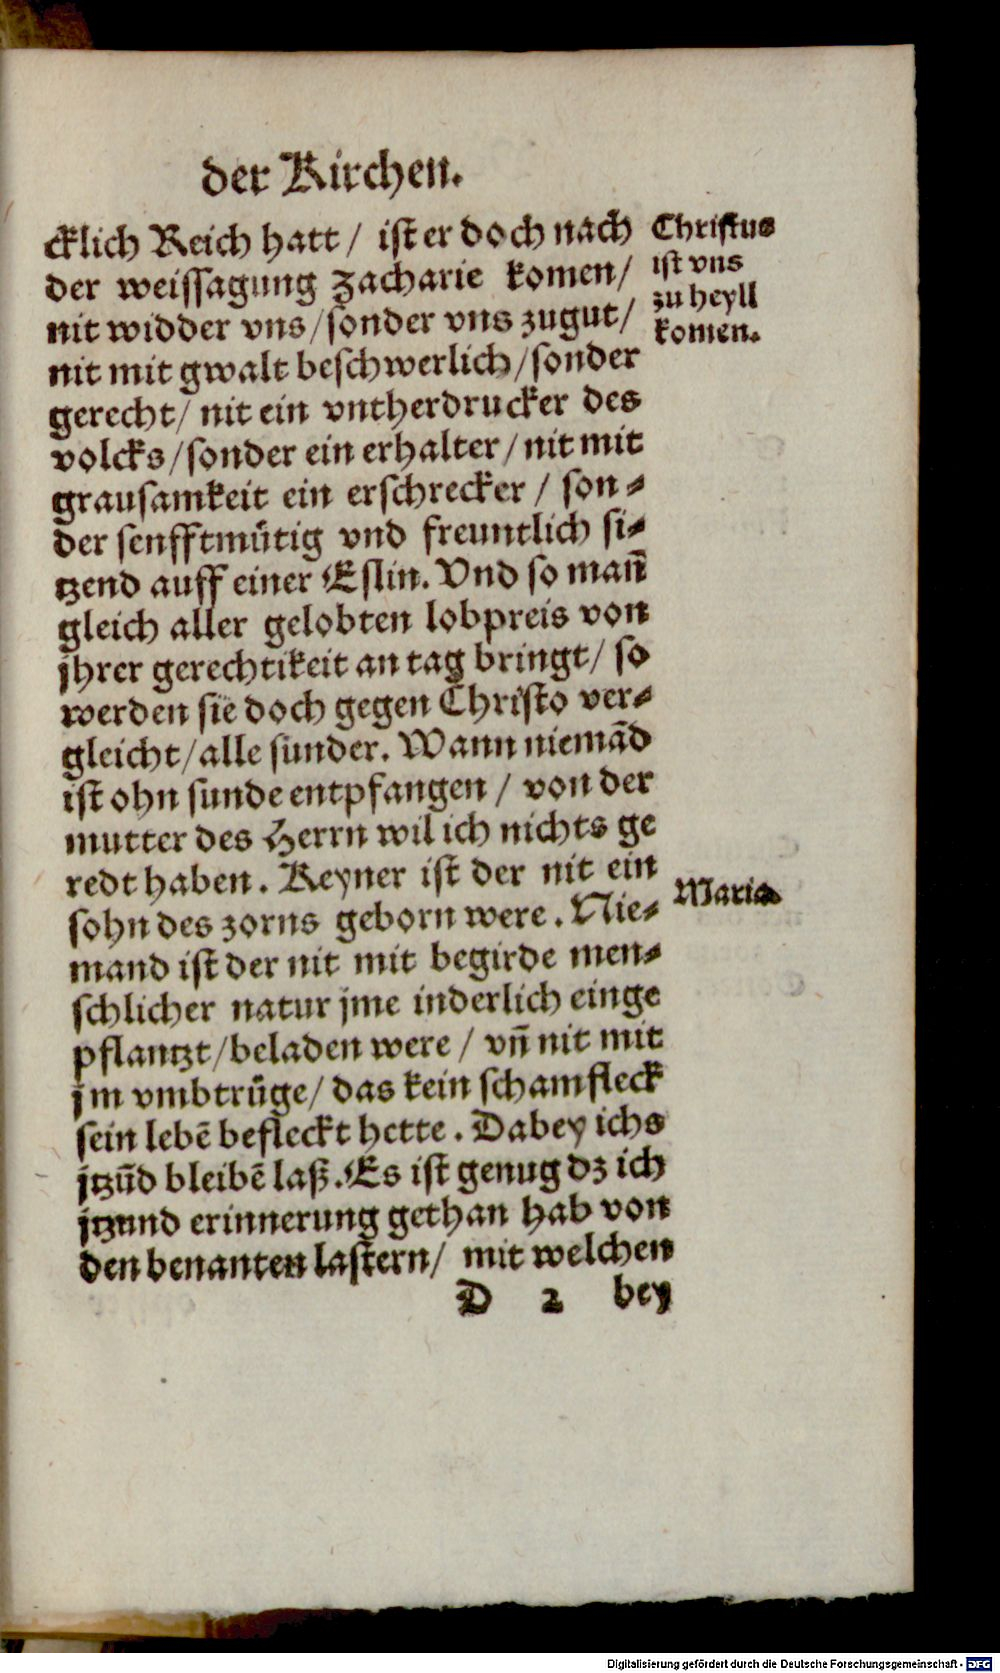 der Kirchen.
cklich Reich hatt / ist er doch nach
der weissagung Zacharie komen /
nit widder vns / sonder vns zugut /
nit mit gwalt beschwerlich / sonder
gerecht / nit ein vntherdrucker des
volcks / sonder ein erhalter / nit mit
grausamkeit ein erschrecker / son⸗
der senfftmütig vnd freuntlich si⸗
tzend auff einer Eslin. Vnd so man̄
gleich aller gelobten lobpreis von
jhrer gerechtikeit an tag bringt / so
werden sie doch gegen Christo ver⸗
gleicht / alle sünder. Wann niemād
ist ohn sunde entpfangen / von der
mutter des Herrn wil ich nichts ge
redt haben. Keyner ist der nit ein
sohn des zorns geborn were. Nie⸗
mand ist der nit mit begirde men⸗
schlicher natur jme inderlich einge
pflantzt / beladen were / vn̄ nit mit
jm vmbtrüge / das kein schamfleck
sein lebē befleckt hette. Dabey ichs
jtzūd bleibē laß. Es ist genug dz ich
jtzund erinnerung gethan hab von
den benanten lastern / mit welchen
D 2 bey
Christus
ist vns
zu heyll
komen.
Maria.
Digitalisierung gefördert durch die Deutsche Forschungsgemeinschaft - DFG